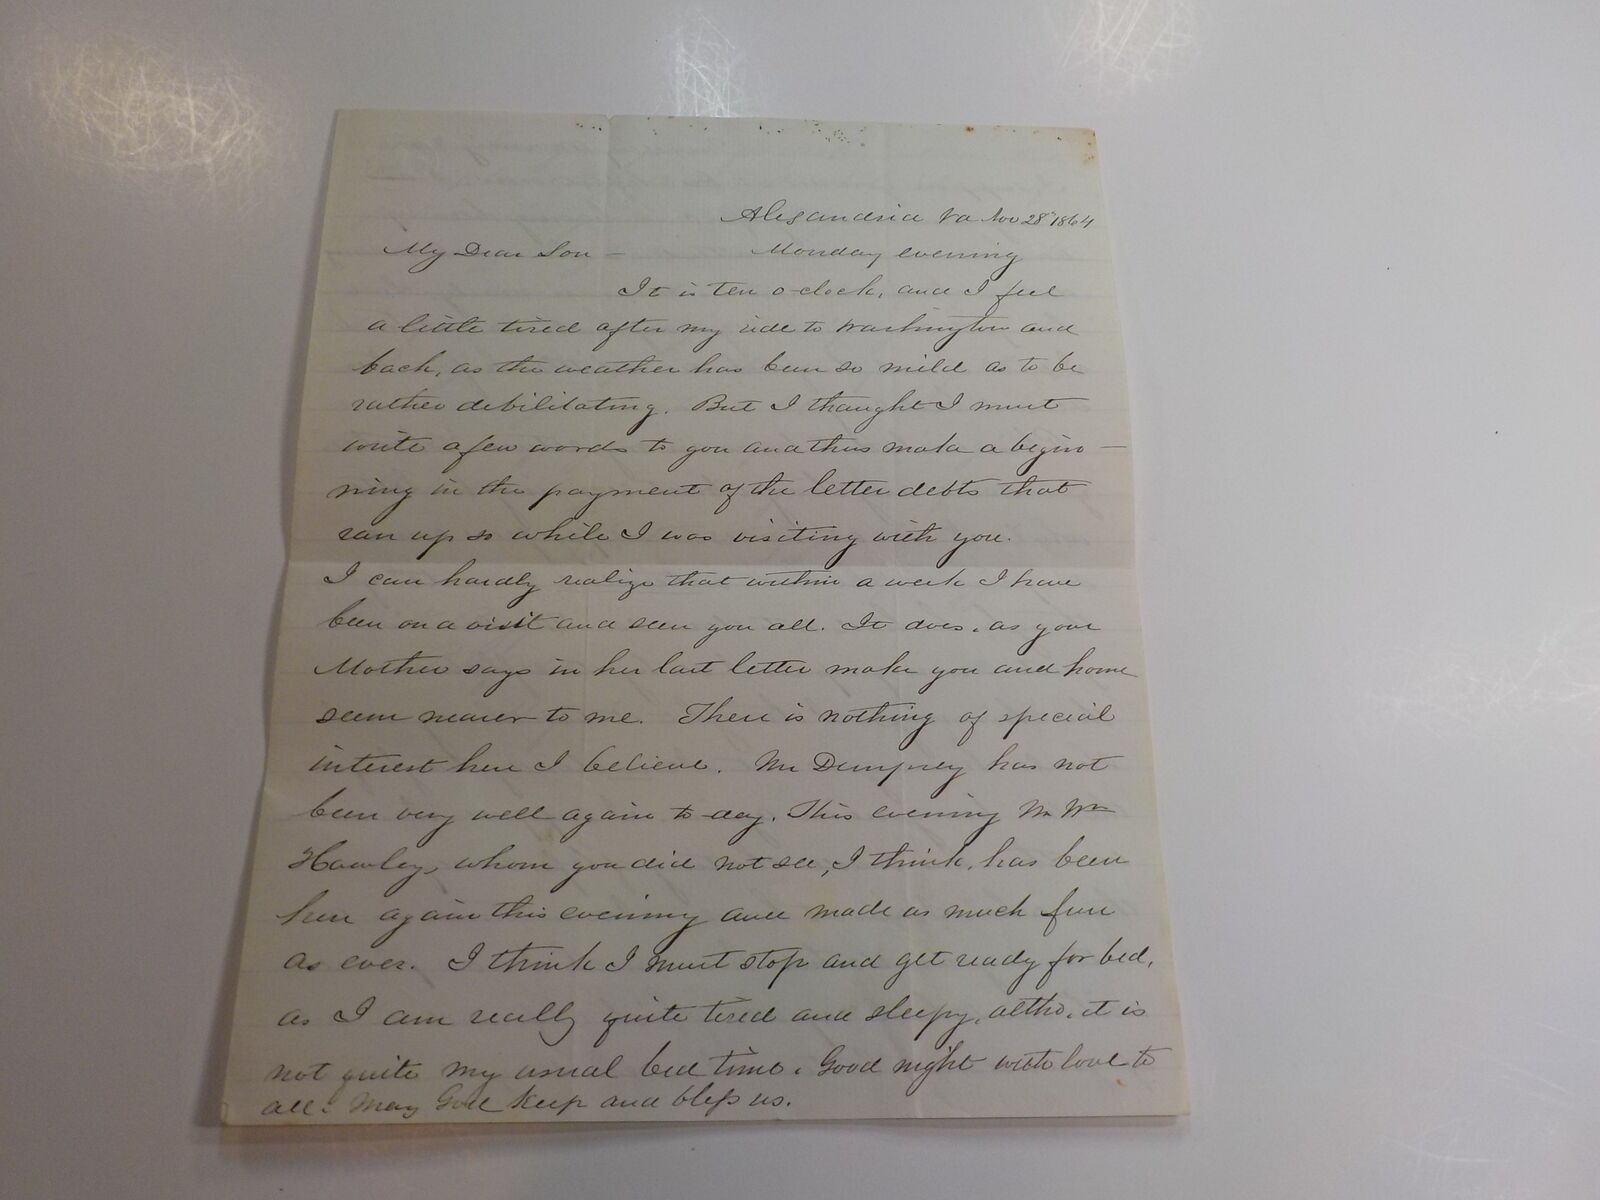 Alexandria Va Nov 28th 1864
My Dear Son – Monday evening
It is ten o-clock, and I feel
a little tired after my ride to Washington and
back, as the weather has been so mild as to be
rather debilitating. But I thought I must
write a few words to you and thus make a begin-
ning in the payment of the letter debts that
ran up so while I was visiting with you.
I can hardly realize that within a week I have
been on a visit and seen you all. It does, as your
Mother says in her last letter make you and home
seem nearer to me. There is nothing of special
interest here I believe. Mr Dempsey has not
been very well again to-day. This evening Mr Wm
Hawley, whom you did not see, I think, has been
here again this evening and made as much fun
as ever. I think I must stop and get ready for bed,
as I am really quite tired and sleepy, altho. it is
not quite my usual bed time. Good night with love to
all. May God keep and bless us.